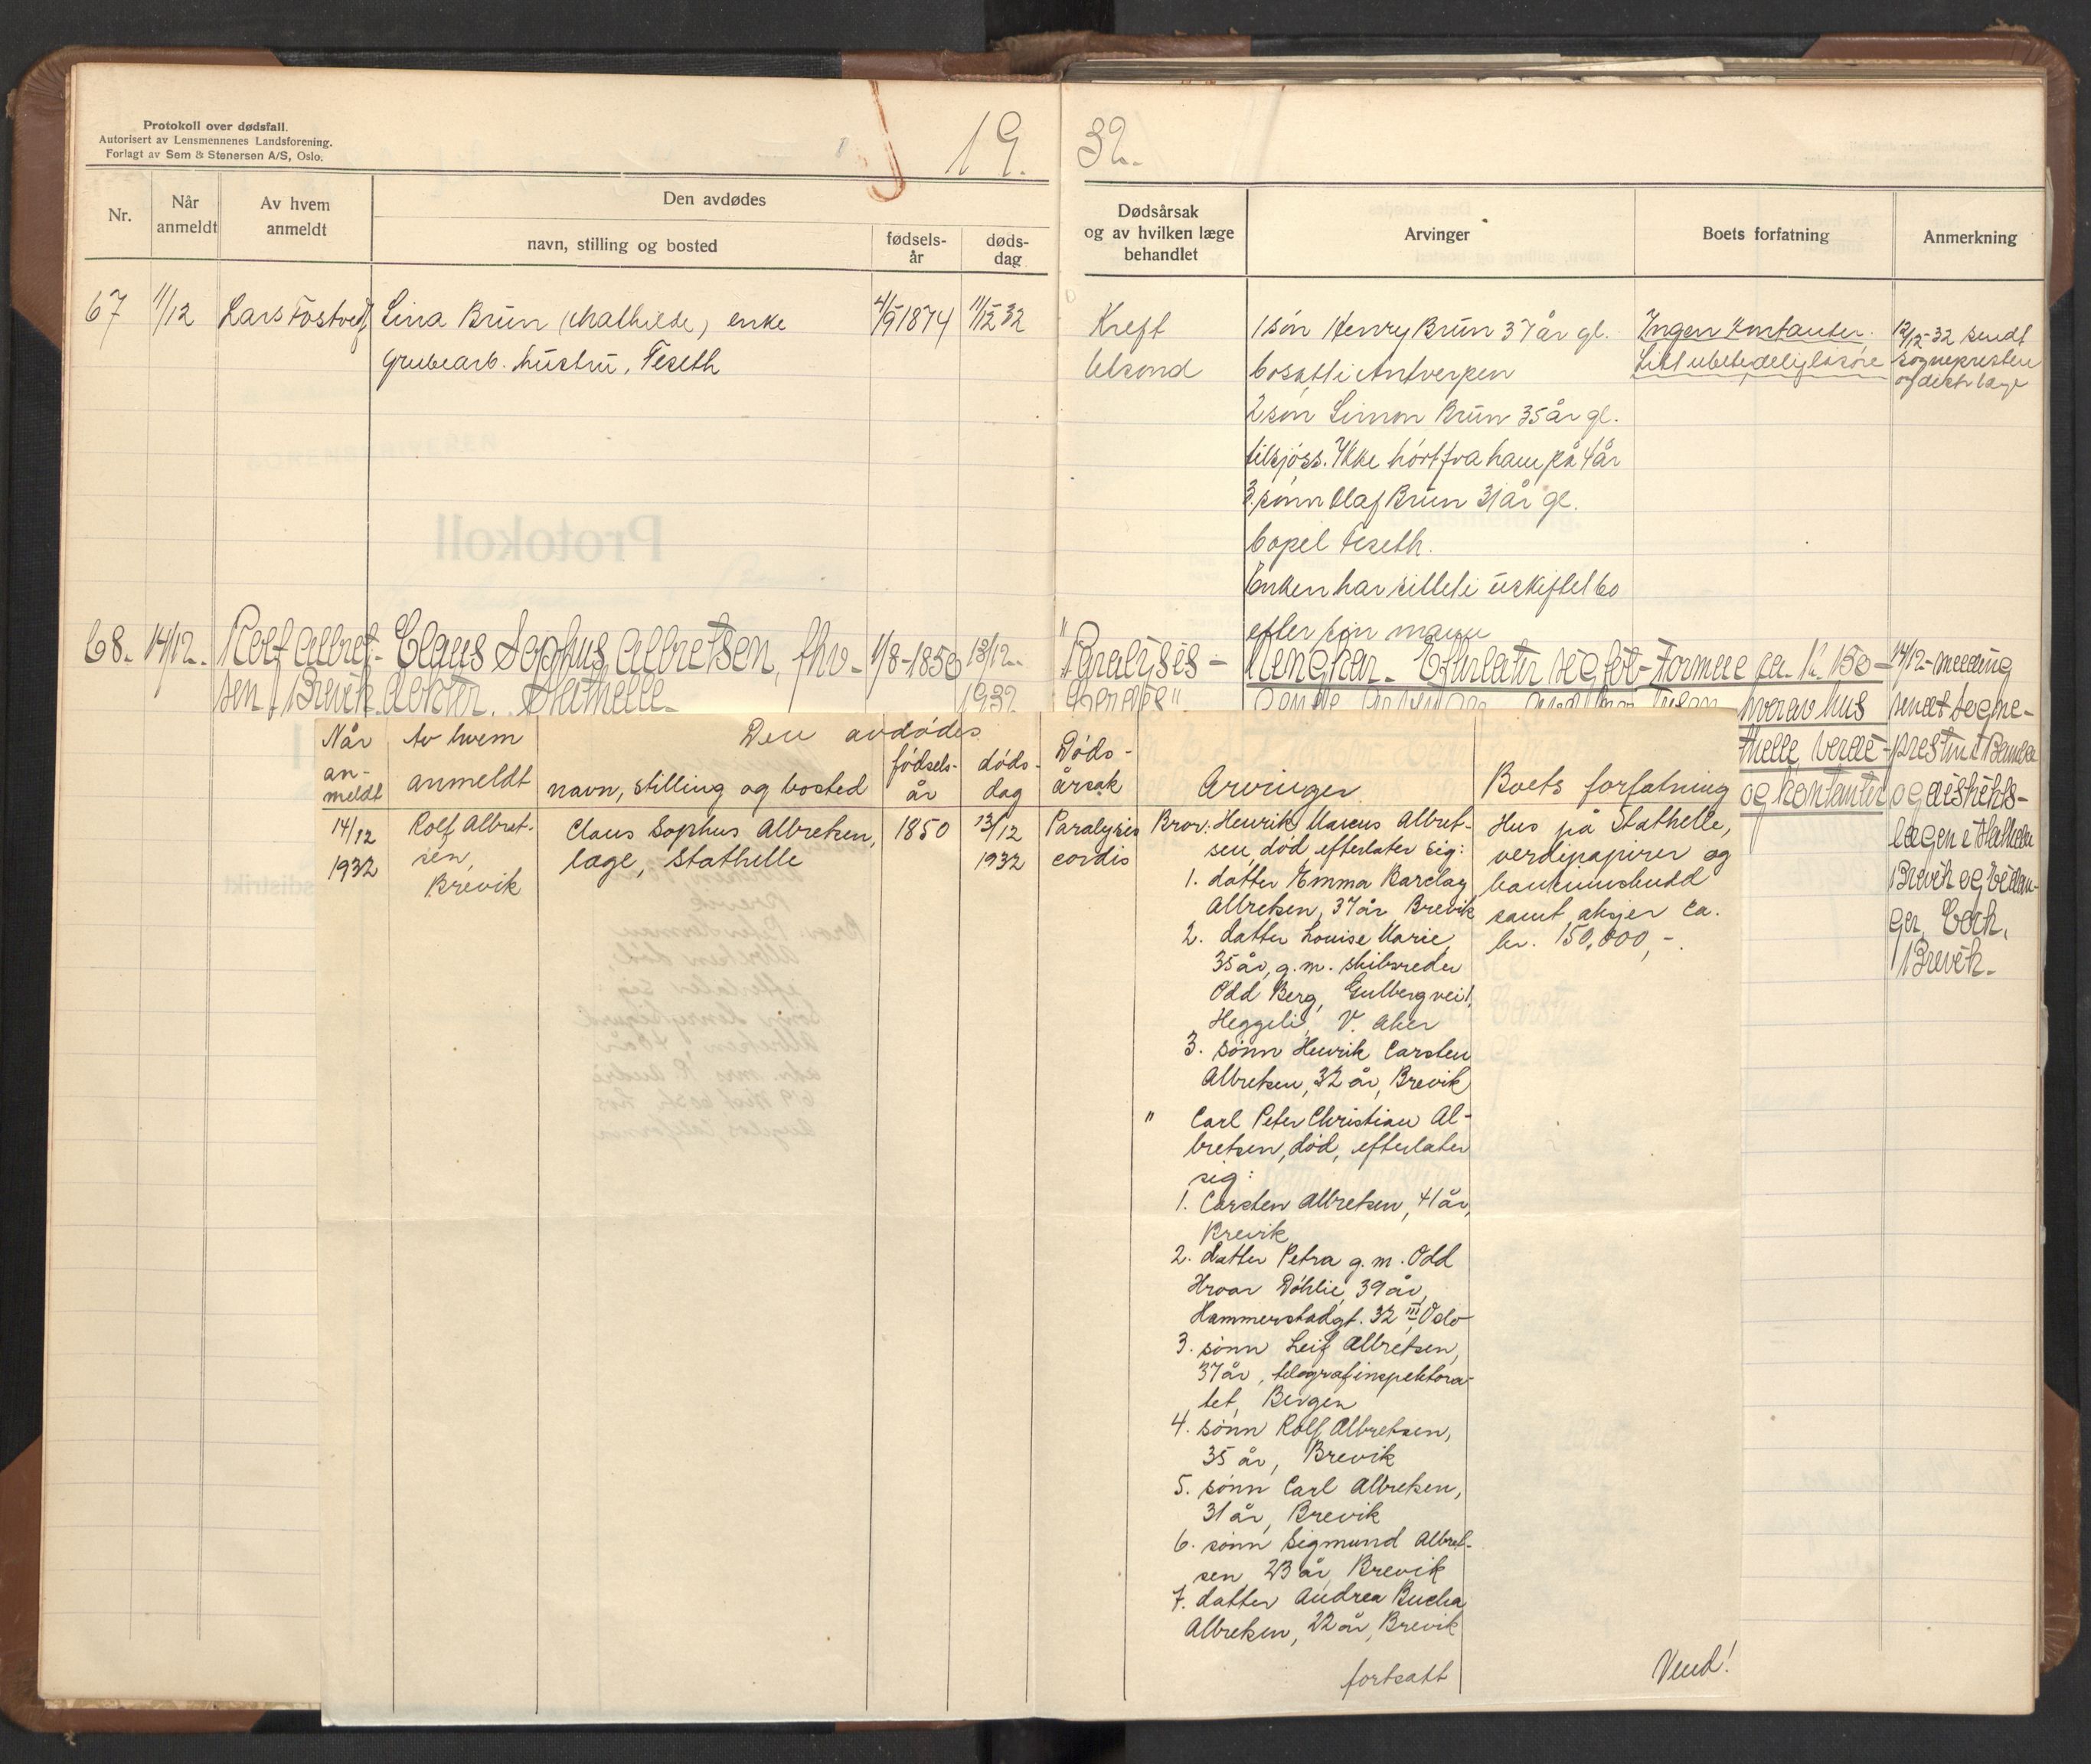 Protokoll over dødsfall.
Autorisert av Lensmennenes Landsforening.
Forlagt av Sem & Stenersen A/S, Oslo.
19.
32.
Nr.
Når
anmeldt
Av hvem
anmeldt
Den avdødes
navn, stilling og bosted
fødsels-
år
døds-
dag
Dødsårsak
og av hvilken læge
behandlet
Arvinger
Boets forfatning
Anmerkning
67
11/12
Lars Tostvedt
Lina Brun (Mathilde) enke
grubearb. hustru, Feseth
4/9 1874
11/12 32
Kreft
1 søn Henry Brun 37 år gl.
bosatt i Antverpen
2 søn Simon Brun 35 år gl.
tilsjøss. Ikke hørt fra ham på 4 år
3. sønn Olaf Brun 31 år gl.
bopel Feseth.
Enken har sittet i uskiftet bo
efter sin mann
Ingen kontanter.
Litt ubetydelig løsøre
12/12-32 sendt
sognepresten
og distr. læge
68.
14/12.
Rolf Albret-
sen, Brevik
Claus Sophus Albretsen, fhv.
doktor. Stathelle.
1/8-1850
13/12.
1932
"Paralysis
Ungkar. Efterlater seg føl-
Formue ca. K. 150
hvorav hus
thelle, verdi-
og kontanter
14/12-melding
sendt sogne-
presten i Bamble
og distrikts-
lægen i Stathelle
Brevik og Eidan-
ger, Eork,
Brevik.
Når
an-
meldt
Av hvem
anmeldt
Den avdødes
navn, stilling og bosted
fødsels-
år
døds-
dag
Døds-
årsak
Arvinger
Boets forfatning
14/12
1932
Rolf Albret-
sen,
Brevik
Claus Sophus Albretsen,
læge, Stathelle
1850
13/12
1932
Paralysis
cordis
Bror: Henrik Marcus Albret-
sen, død efterlater sig:
1. datter Emma Barclay
Albretsen, 37 år, Brevik
2. datter Louise Marie,
35 år, g.m. skibsreder
Odd Berg, Gulbergvei 1,
Heggeli, V. Aker
3. sønn Henrik Carsten
Albretsen, 32 år, Brevik
" Carl Peter Christian Al-
bretsen, død, efterlater
sig:
1. Carsten Albretsen, 41 år,
Brevik
2. datter Petra g.m. Odd
Hroar Døhlie, 39 år,
Hammerstadgt. 32 III, Oslo
3. sønn Leif Albretsen,
37 år, telegrafinspektora-
tet, Bergen
4. sønn Rolf Albretsen,
35 år, Brevik
5. sønn Carl Albretsen,
31 år, Brevik
6. sønn Sigmund Albret-
sen, 23 år, Brevik
7. datter Andrea Bucha
Albretsen, 22 år, Brevik
fortsatt
Hus på Stathelle,
verdipapirer og
bankinnskudd
samt aksjer ca.
kr. 150,000,-.
Vend!